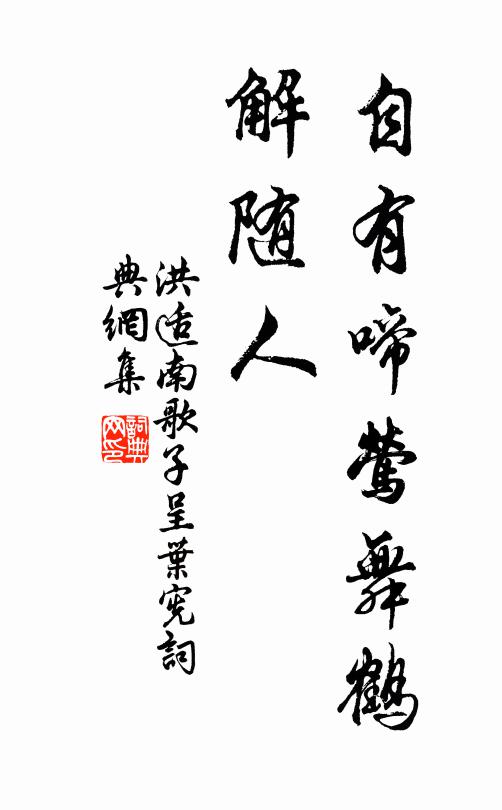 自有啼莺舞鹤
解随人
洪适南歌子呈葉宪詞
典網集
詞典
网印